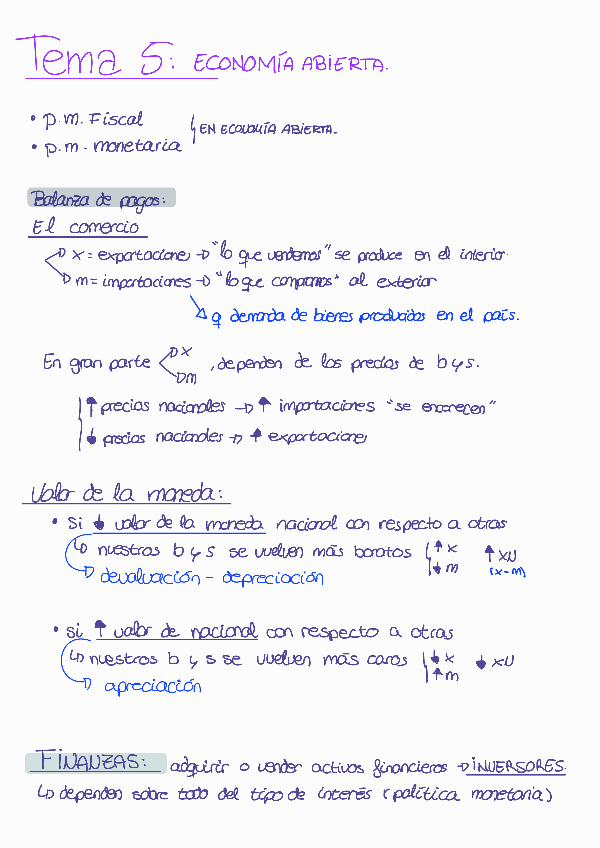 Tema 5: ECONOMÍA ABIERTA.
• p.m. Fiscal
EN ECONOMÍA ABIERTA.
• p.m. monetaria
Balanza de pagos:
El comercio
x = exportaciones → "lo que vendemos" se produce en el interior.
m = importaciones → "lo que compramos" al exterior
q demanda de bienes producidos en el país.
En gran parte x m, dependen de los precios de b y s.
↑ precios nacionales → ↑ importaciones "se encarecen"
↓ precios nacionales → ↑ exportaciones
Valor de la moneda:
• Si ↓ valor de la moneda nacional con respecto a otras
↳ nuestras b y s se vuelven más baratos ↑ x ↓ m ↑ XN (x-m)
devaluación - depreciación
• Si ↑ valor de nacional con respecto a otras
↳ nuestros b y s se vuelven más caros ↓ x ↑ m ↓ XN
apreciación
FINANZAS: adquirir o vender activos financieros → INVERSORES.
↳ dependen sobre todo del tipo de interés (política monetaria)